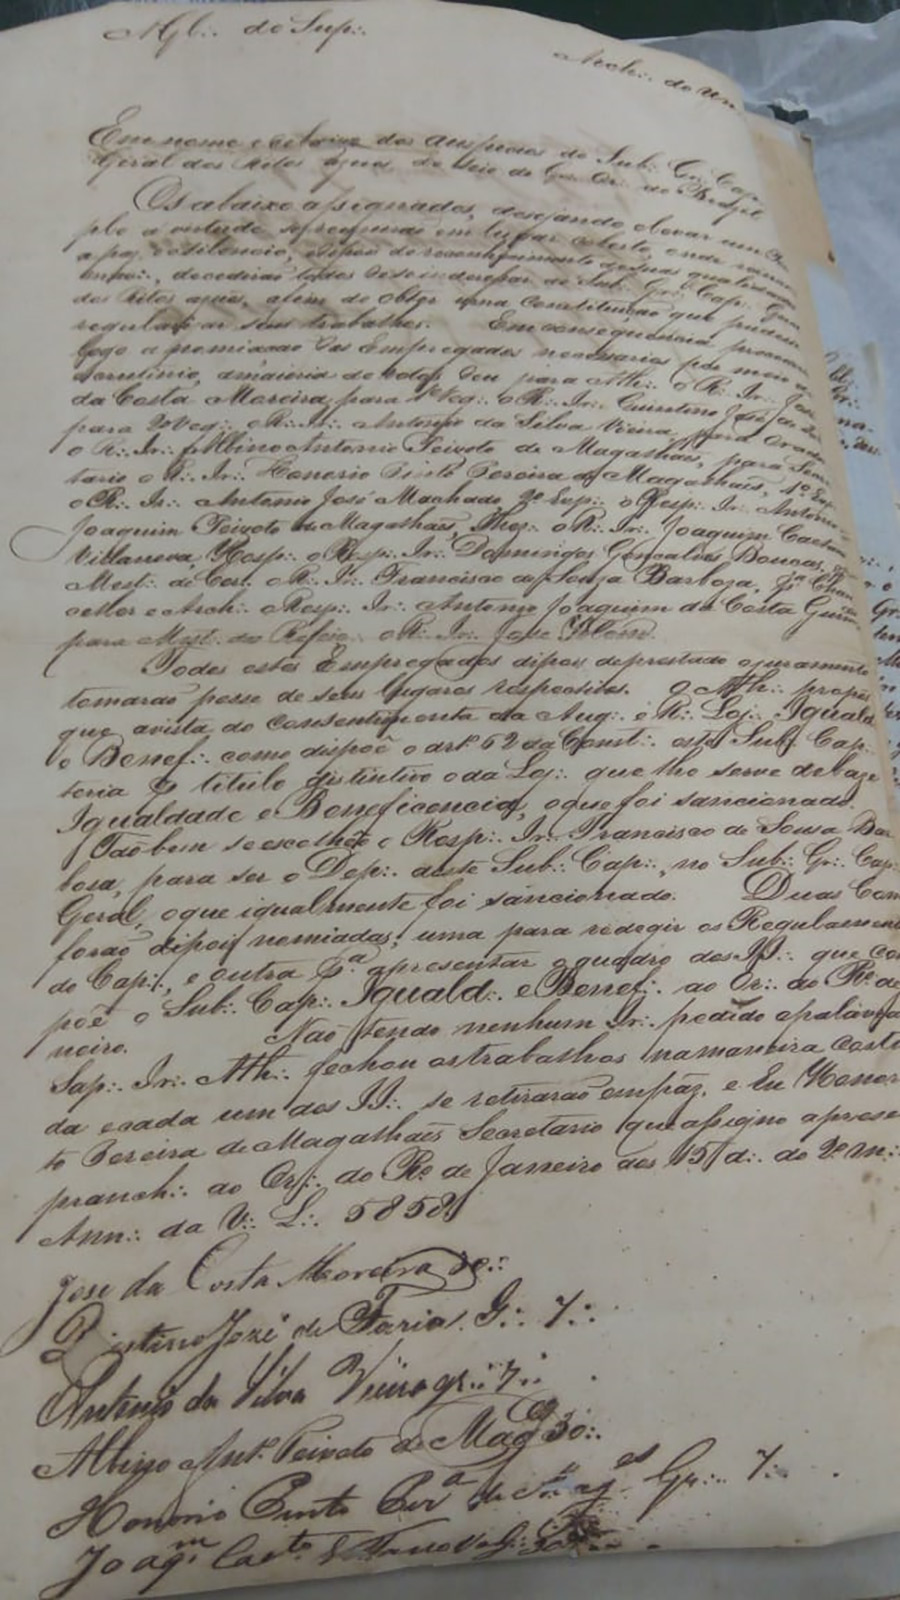 Á Gl∴ do Sup∴
Arch∴ do Un
Em nome e debaixo dos auspicios do Sub∴ Gr∴ Cap∴
Geral dos Ritos azues, do seio do Gr∴ Or∴ do Brazil
Os abaixo assignados, desejando elevar um
plo á virtude, se reunirão em lugar coberto, onde
a paz e o silencio, depois do reconhecimento de suas qualidades
decedirão todos Gr∴ Cap∴
dos Ritos azues, afim de obter uma Constituição que
regularisar seus trabalhos. Em consequencia
logo a nomiação dos Empregados necessarios por meio
scrutinio, a maioria de votos deu para Ath∴ o R∴ Ir∴ José
da Costa Moreira, para 1º Vig∴ o R∴ Ir∴ Quintino José de
para 2º Vig∴ o R∴ Ir∴ Antonio da Silva Vieira, para Orador
o R∴ Ir∴ Albino Antonio Peixoto de Magalhães, para Secre
tario o R∴ Ir∴ Honorio Pinto Pereira de Magalhães, 1º Exp∴
o R∴ Ir∴ Antonio José Machado 2º Exp∴ o Resp∴ Ir∴ Antonio
Joaquim Peixoto de Magalhães, Thez∴ o R∴ Ir∴ Joaquim Caetano
Villanova, Hosp∴ o Resp∴ Ir∴ Domingos Gonçalves
Mest∴ de Cer∴ o R∴ Ir∴ Francisco de Souza Barboza, pª Chan
celler e Arch∴ o Resp∴ Ir∴ Antonio Joaquim da Costa
para Mest∴ do Refeio∴ o R∴ Ir∴ José
Todos estes Empregados dipois de prestado o juramento
tomarão posse de seus lugares respectivos. O Ath∴ propoz
que avista do consentimento da Aug∴ e R∴ Loj∴ Iguald
e Benef∴ como dispoê o artº 62 da Const∴ este Sub∴ Cap∴
teria p titulo distintivo o da Loj∴ que lhe serve de baze
Igualdade e Beneficencia, o que foi sancionado.
Tão bem se escolheo o Resp∴ Ir∴ Francisco de Sousa Bar
boza, para ser o Dep∴ deste Sub∴ Cap∴, no Sub∴ Gr∴ Cap∴
Geral, o que igualmente foi sancionado. Duas Com
forão dipois nomiadas, uma para redegir os Regulament
do Cap∴, e outra pª apresentar o quadro dos II∴ que com
poê o Sub∴ Cap∴ Iguald∴ e Benef∴ ao Or∴ do Rº de
neiro. Não tendo nenhum Ir∴ pedido a palavra
Sap∴ Ir∴ Ath∴ fechou os trabalhos na maneira costu
da e cada um dos II∴ se retirarão em páz, e Eu Honor
to Pereira de Magalhães Secretario que assigno a prese
pranch∴ ao Or∴ do Rº de Janeiro aos 15 d∴ do 2º m∴
Ann∴ da V∴ L∴ 5858
Jose da Costa Moreira
Quintino Jozé de Faria G∴ 7∴
Antonio da Silva Vieira gr∴ 7∴
Albino Antº Peixoto de Magᵉˢ 30∴
Honorio Pinto Perª de Magᵉˢ Gr∴ 7∴
Joaqᵐ Caetº Villanova